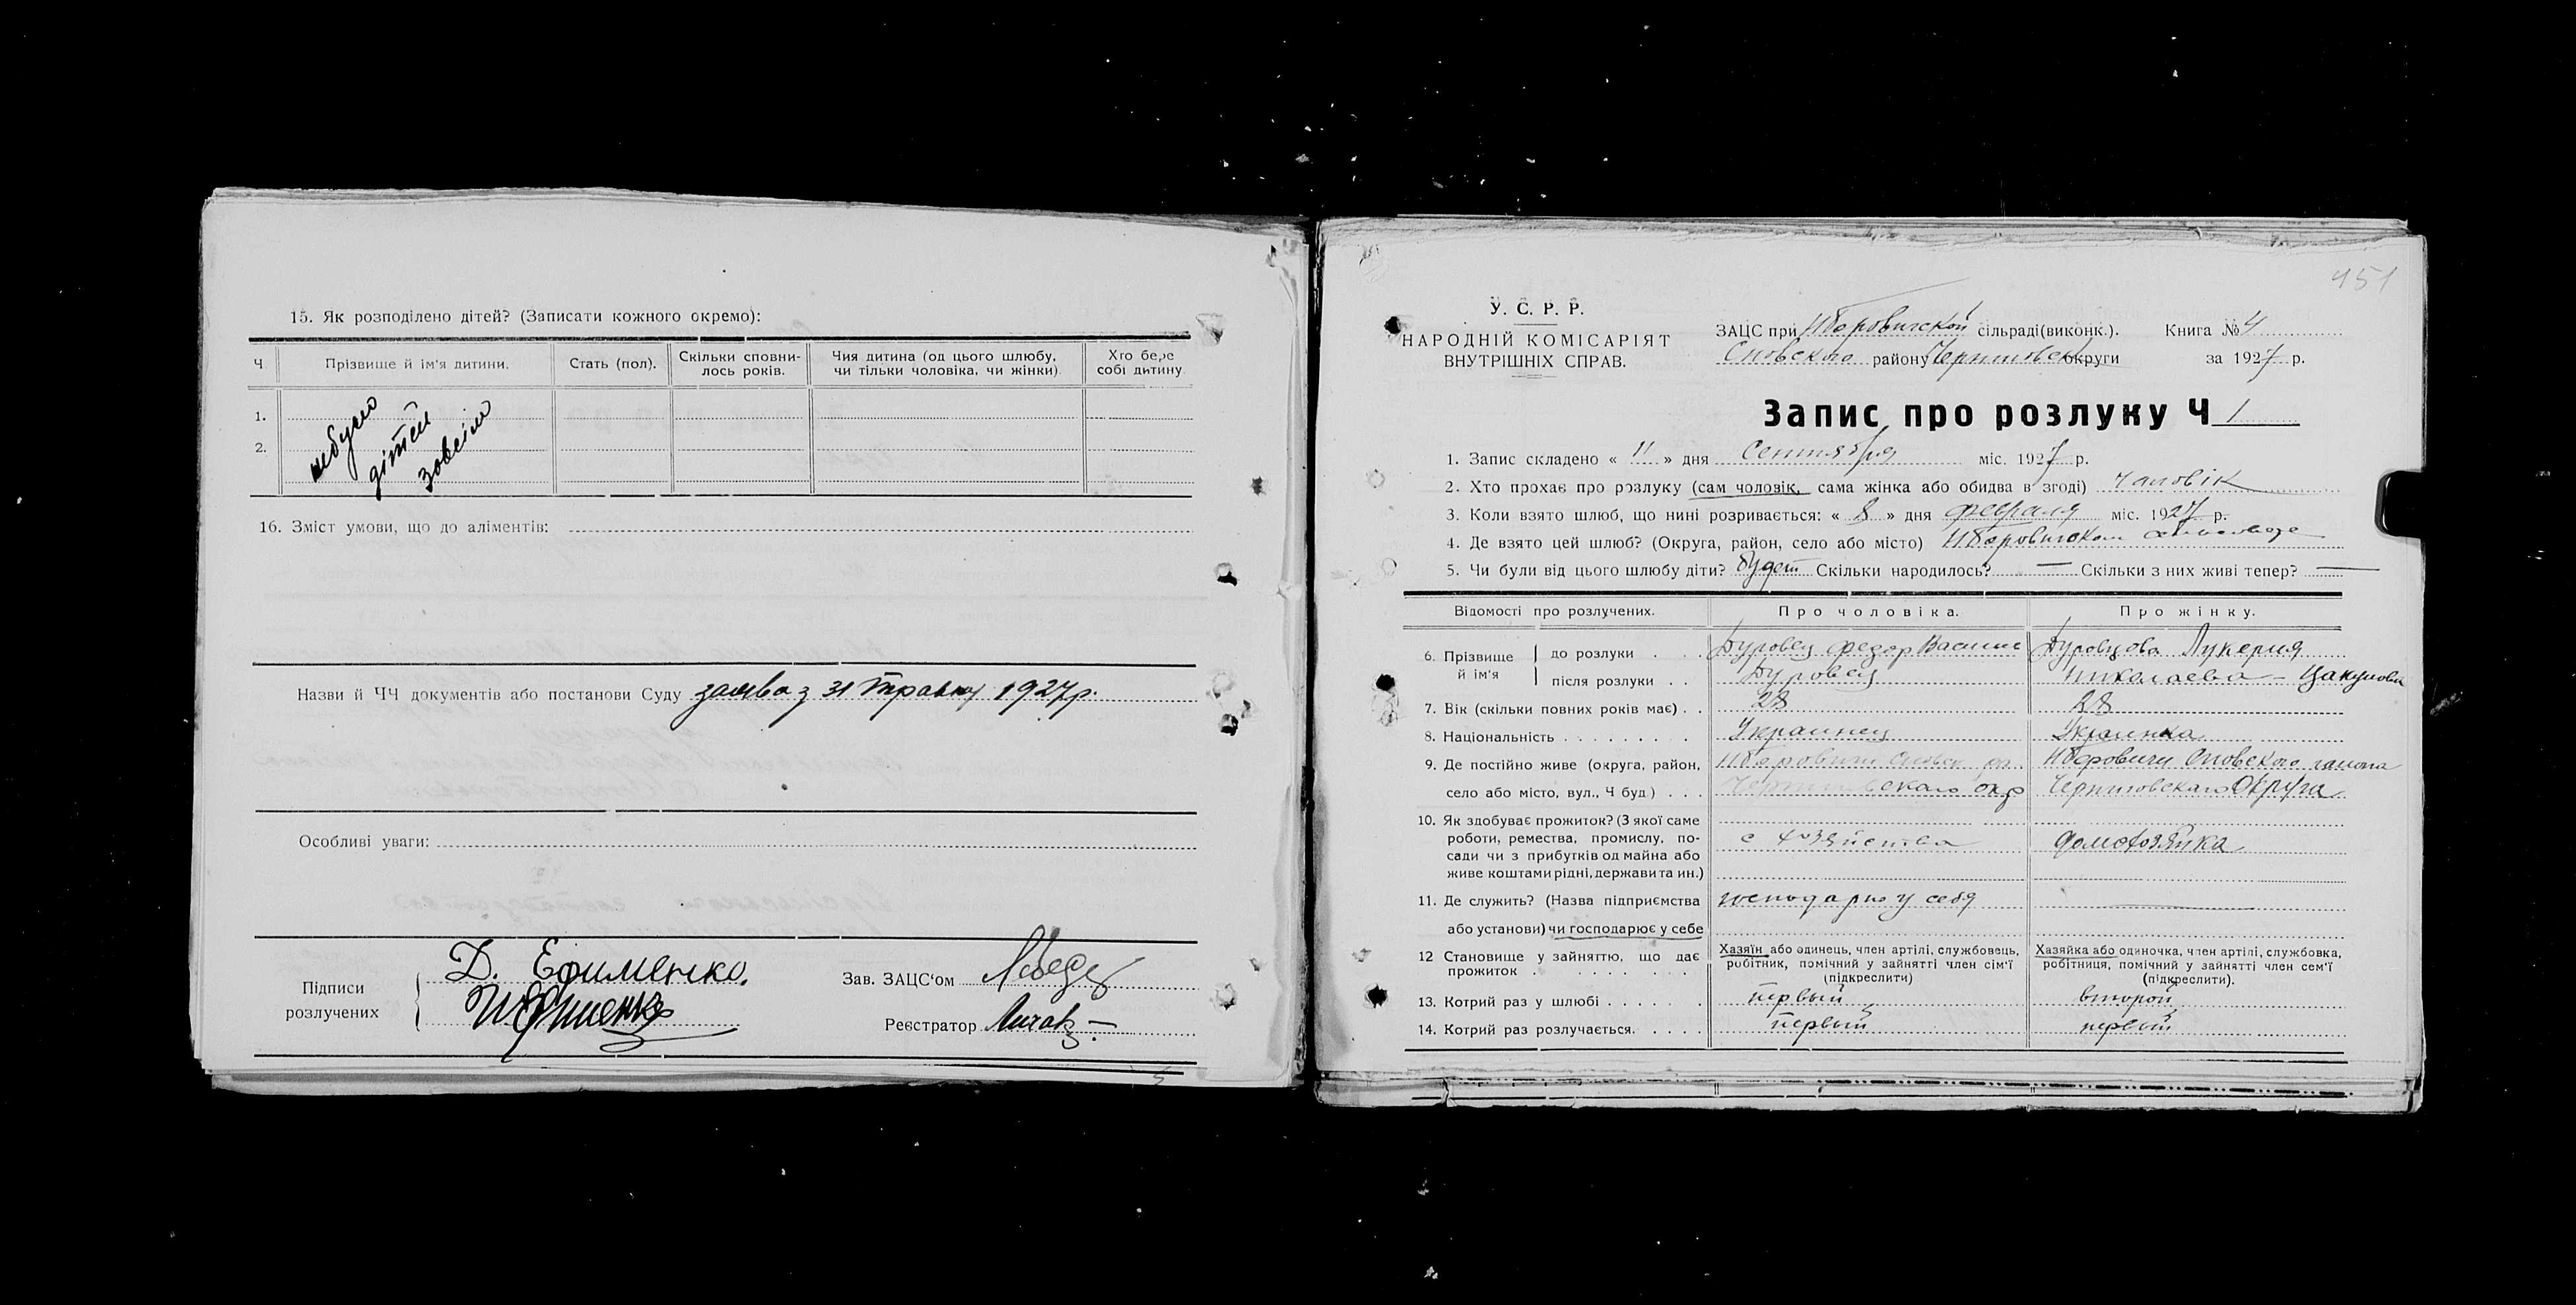 15. Як розподілено дітей? (Записати кожного окремо):
Ч Прізвище й ім'я дитини. Стать (пол). Скільки сповни-лось років. Чия дитина (од цього шлюбу, чи тільки чоловіка, чи жінки) Хто бере собі дитину.
1.
2.
небуло
дітей
зовсім
16. Зміст умови, що до аліментів:
Назви й ЧЧ документів або постанови Суду заява з 31 травня 1927 р.
Особливі уваги:
Підписи розлучених
Д. Ефименко.
Зав. ЗАЦС'ом
Реєстратор
451
У. С. Р. Р.
НАРОДНІЙ КОМІСАРІЯТ
ВНУТРІШНІХ СПРАВ.
ЗАЦС при сільраді (виконк.). Книга № 4
Сновского району Черниговск округи за 1927 р.
Запис про розлуку Ч 1
1. Запис складено « 11 » дня Сентября міс. 1927 р.
2. Хто прохає про розлуку (сам чоловік, сама жінка або обидва в згоді) Чаловік
3. Коли взято шлюб, що нині розривається: « 8 » дня февраля міс. 1927 р.
4. Де взято цей шлюб? (Округа, район, село або місто)
5. Чи були від цього шлюбу діти? будет Скільки народилось? — Скільки з них живі тепер? —
Відомості про розлучених. Про чоловіка. Про жінку.
6. Прізвище й ім'я
до розлуки . . . Буровец Федор Васили Буровцова Лукерия
після розлуки . . Буровец Николаева -
7. Вік (скільки повних років має) . . 28 28
8. Національність . . . . . . . . . Украинец Украинка
9. Де постійно живе (округа, район,
село або місто, вул., Ч буд.) . . . Черниговского окр Черниговского Округа
10. Як здобуває прожиток? (З якої саме
роботи, ремества, промислу, по-
сади чи з прибутків од майна або
живе коштами рідні, держави та ин.)
с хозяйства домохозяйка
11. Де служить? (Назва підприємства господарю у себя —
або установи) чи господарює у себе
12 Становище у зайняттю, що дає
прожиток . . . . . . . .
Хазяїн або одинець, член артілі, службовець,
робітник, помічний у зайнятті член сім'ї
(підкреслити)
Хазяйка або одиночка, член артілі, службовка,
робітниця, помічний у зайнятті член сем'ї
(підкреслити).
13. Котрий раз у шлюбі . . . . . . первый второй
14. Котрий раз розлучається. . . . . первый первый